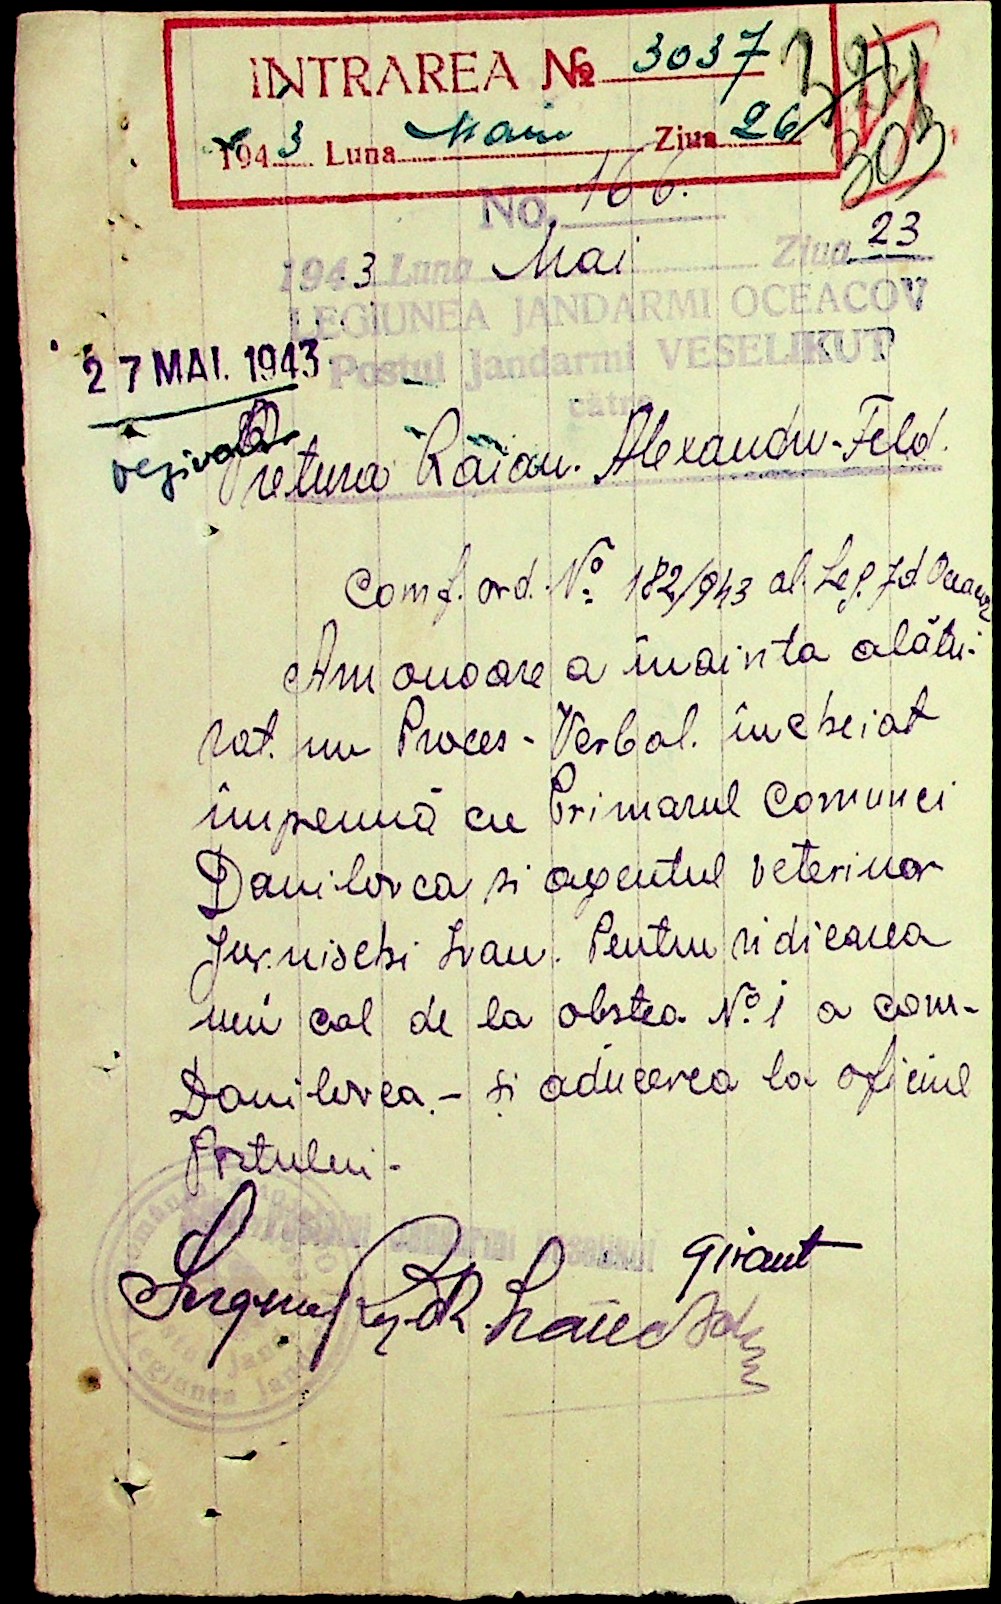 INTRAREA № 3037
1943 Luna Maiu Ziua 26
303
No. 166.
1943 Luna Mai Ziua 23
LEGIUNEA JANDARMI OCEACOV
Postul Jandarmi VESELIKUT
către
27 MAI. 1943
Pretura Raion. Alexandru-Feld.
Conf. ord. No. 182/943 al. Leg. Jd. Oceacov
Am onoare a înainta alătu-
rat. un Proces-Verbal. încheiat
împreună cu Primarul Comunei
Danilovca si agentul veterinar
Ivan. Pentru ridicarea
unui cal de la obstea No. 1 a com-
Danilovca.- și aducerea la oficiul
Postului-
Girant